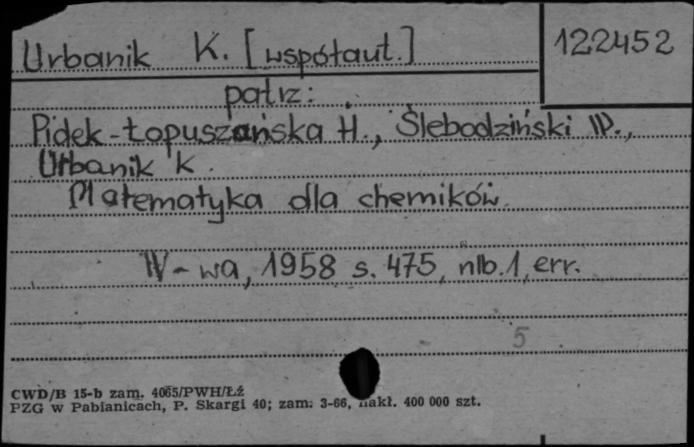 Urbanik K. [współaut.] 122452
patrz:
Pidek-Łopuszańska H., Ślebodziński W.,
Urbanik K.
Matematyka dla chemików.
W-wa, 1958 s. 475, nlb. 1, err.
5
CWD/B 15-b zam. 4065/PWH/Łź
PZG w Pabianicach, P. Skargi 40; zam. 3-66, nakł. 400 000 szt.